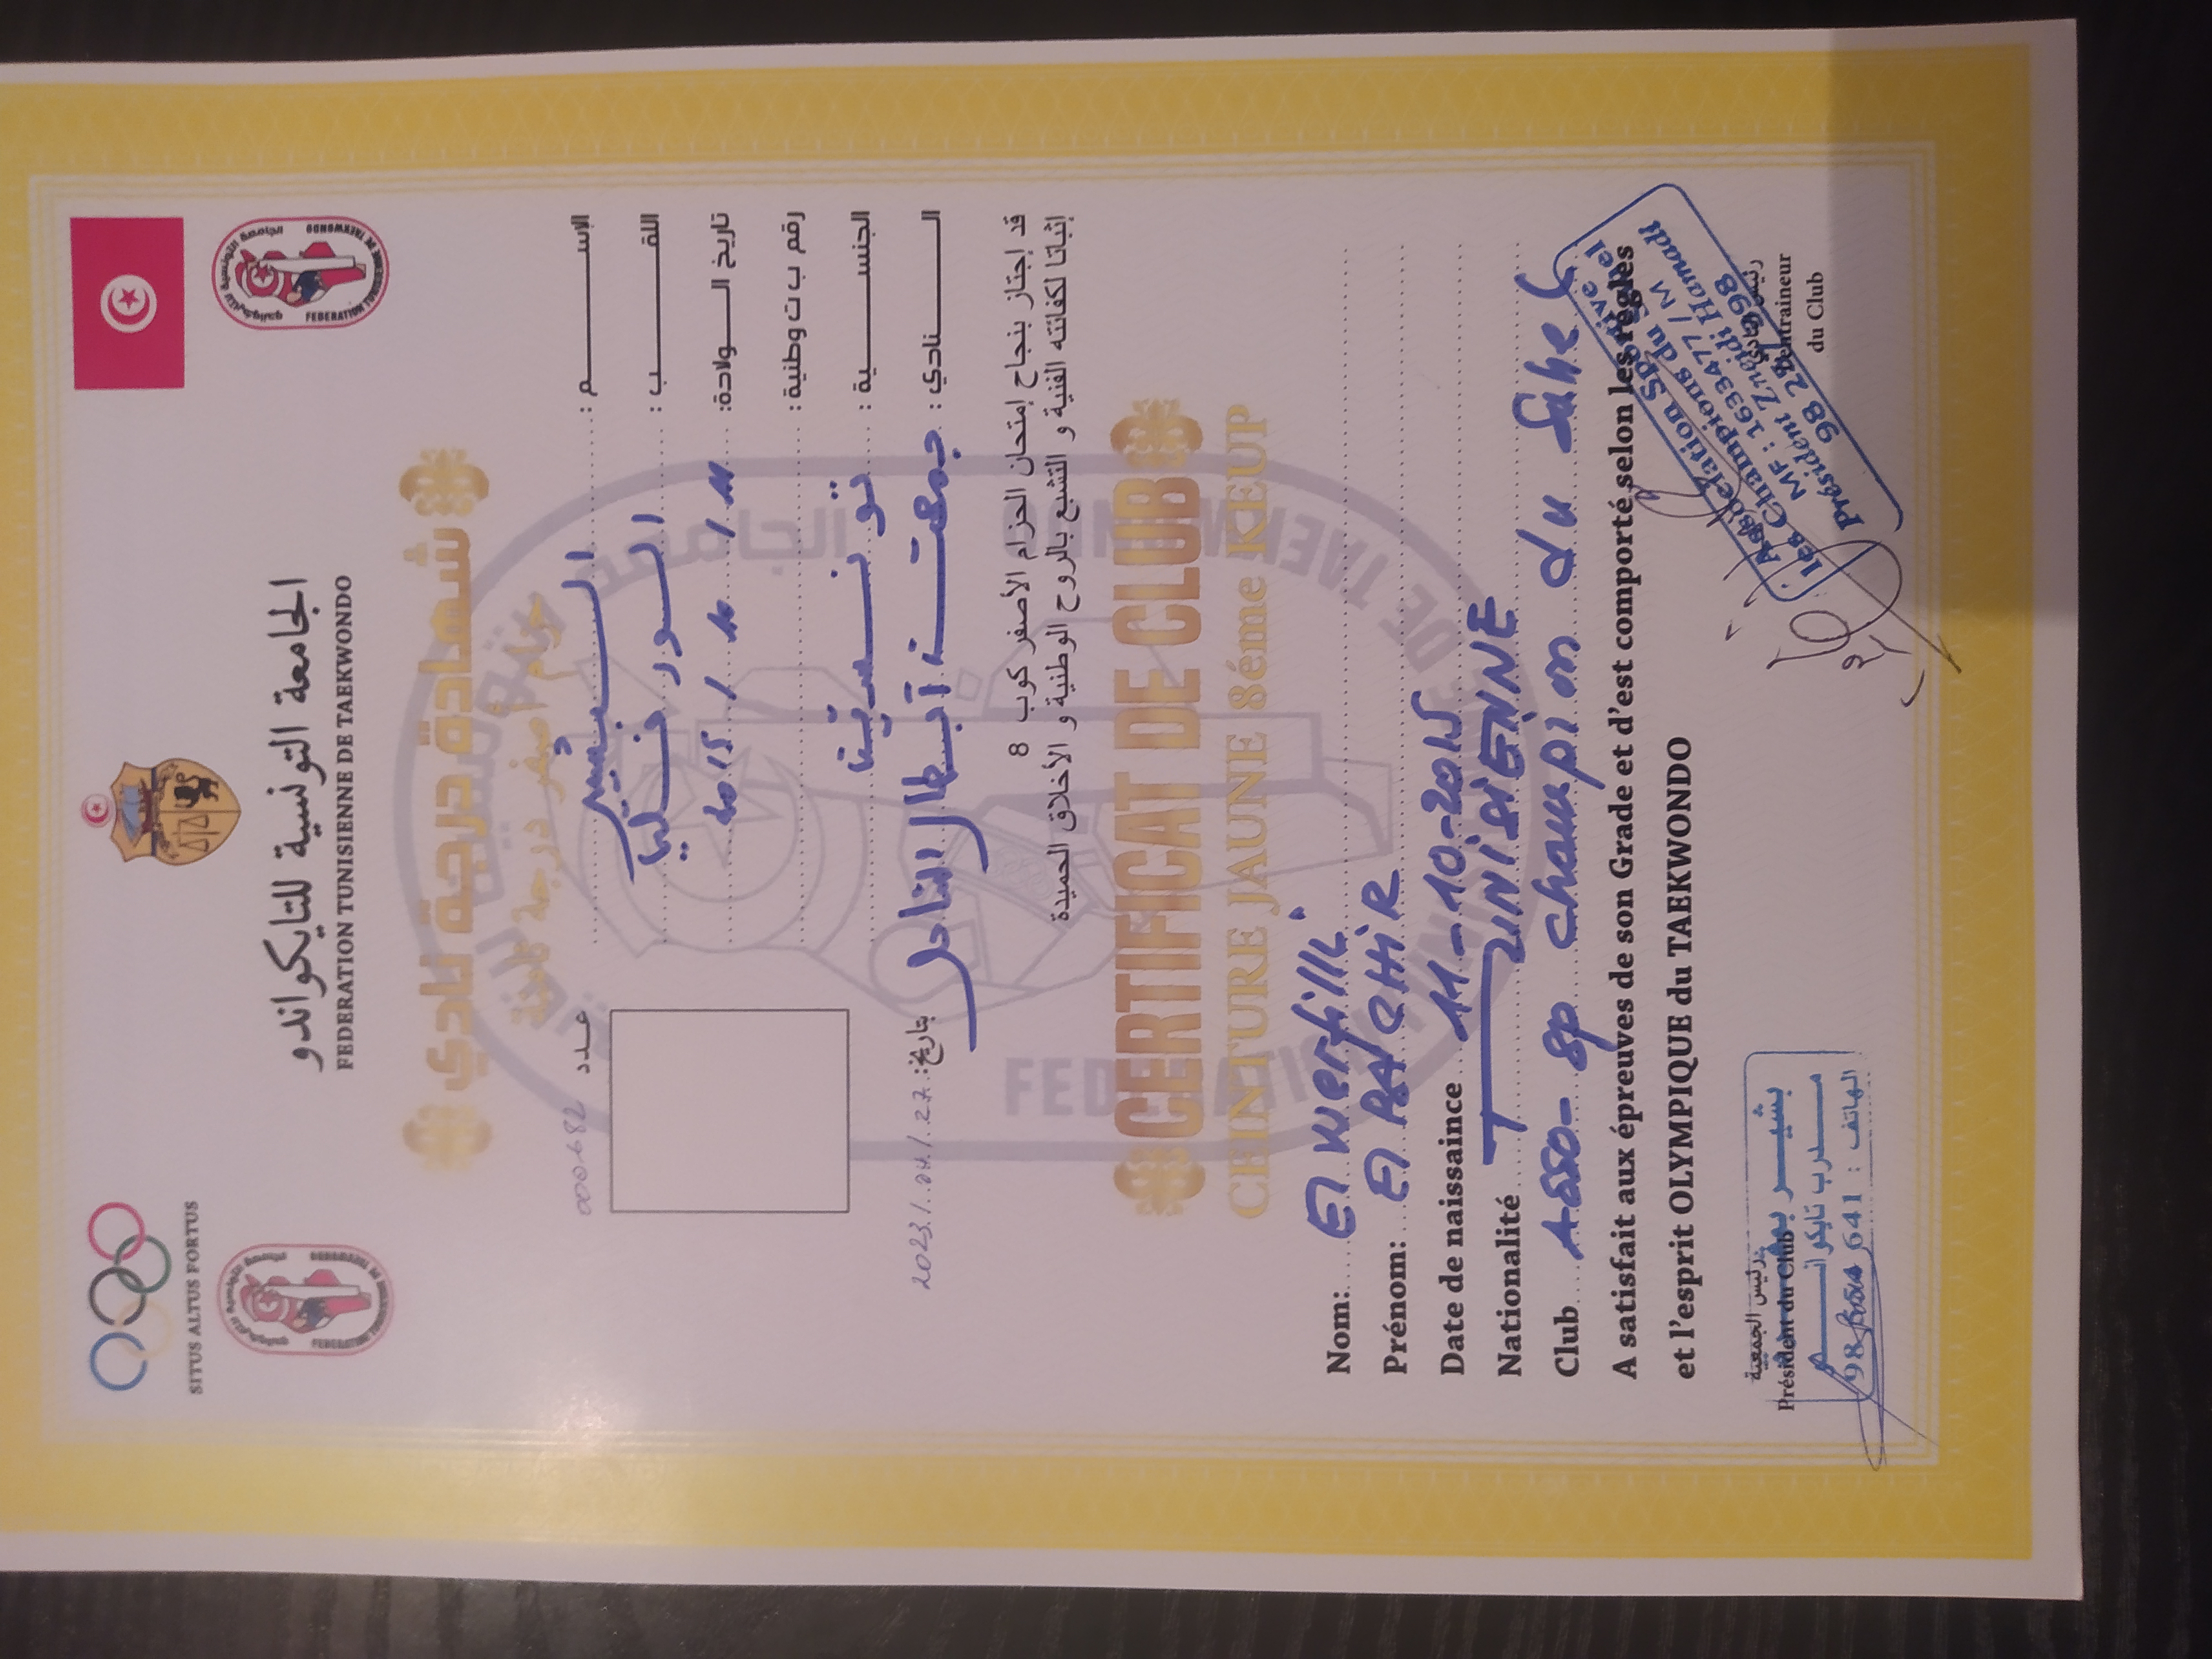 SITUS ALTUS FORTUS
الجامعة التونسية للتايكواندو
FEDERATION TUNISIENNE DE TAEKWONDO
شهادة درجة نادي
حزام أصفر درجة ثامنة
عدد 0006682
الإسم : البشير
اللقب : الورفلي
تاريخ الولادة: 2015 / 10 / 11
رقم ب ت وطنية :
الجنسية : تونسية
النادي : جمعية أبطال الساحل
بتاريخ: 2023/.04/.27
قد إجتاز بنجاح إمتحان الحزام الأصفر كوب 8
إثباتا لكفائته الفنية و التشبع بالروح الوطنية و الأخلاق الحميدة
CERTIFICAT DE CLUB
CEINTURE JAUNE 8éme KEUP
Nom: El Werfilli
Prénom: El BACHIR
Date de naissance 11-10-2015
Nationalité TUNISIENNE
Club Asso- sp champion du Sahel
A satisfait aux épreuves de son Grade et d'est comporté selon les règles
et l'esprit OLYMPIQUE du TAEKWONDO
رئيس الجمعية
Président du Club
مدرب تايكوانـــــم
الهاتف : 641
Association Sportive
les Champions du Sahel
MF : 1633477 / M
Président Zneidi Hamadi
98 298
L'entraineur
du Club